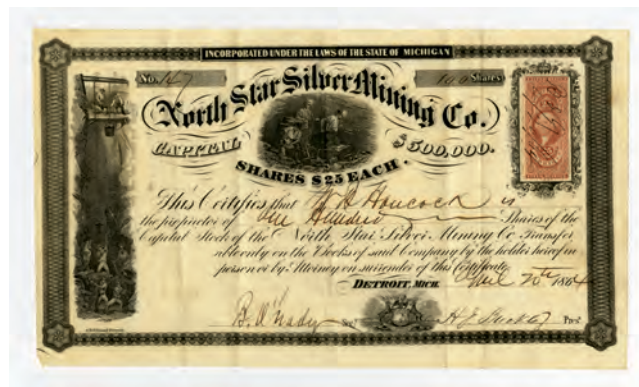 INCORPORATED UNDER THE LAWS OF THE STATE OF MICHIGAN
No. 147 100 Shares
North Star Silver Mining Co.
CAPITAL $500,000.
SHARES $25 EACH.
This Certifies that W. A. Houcock is
the proprietor of One Hundred Shares of the
Capital Stock of the North Star Silver Mining Co. Transfer
able only on the Books of said Company by the holder hereof in
person or by Attorney on surrender of this Certificate
DETROIT, MICH. April 20th 1864
Sec. Prest